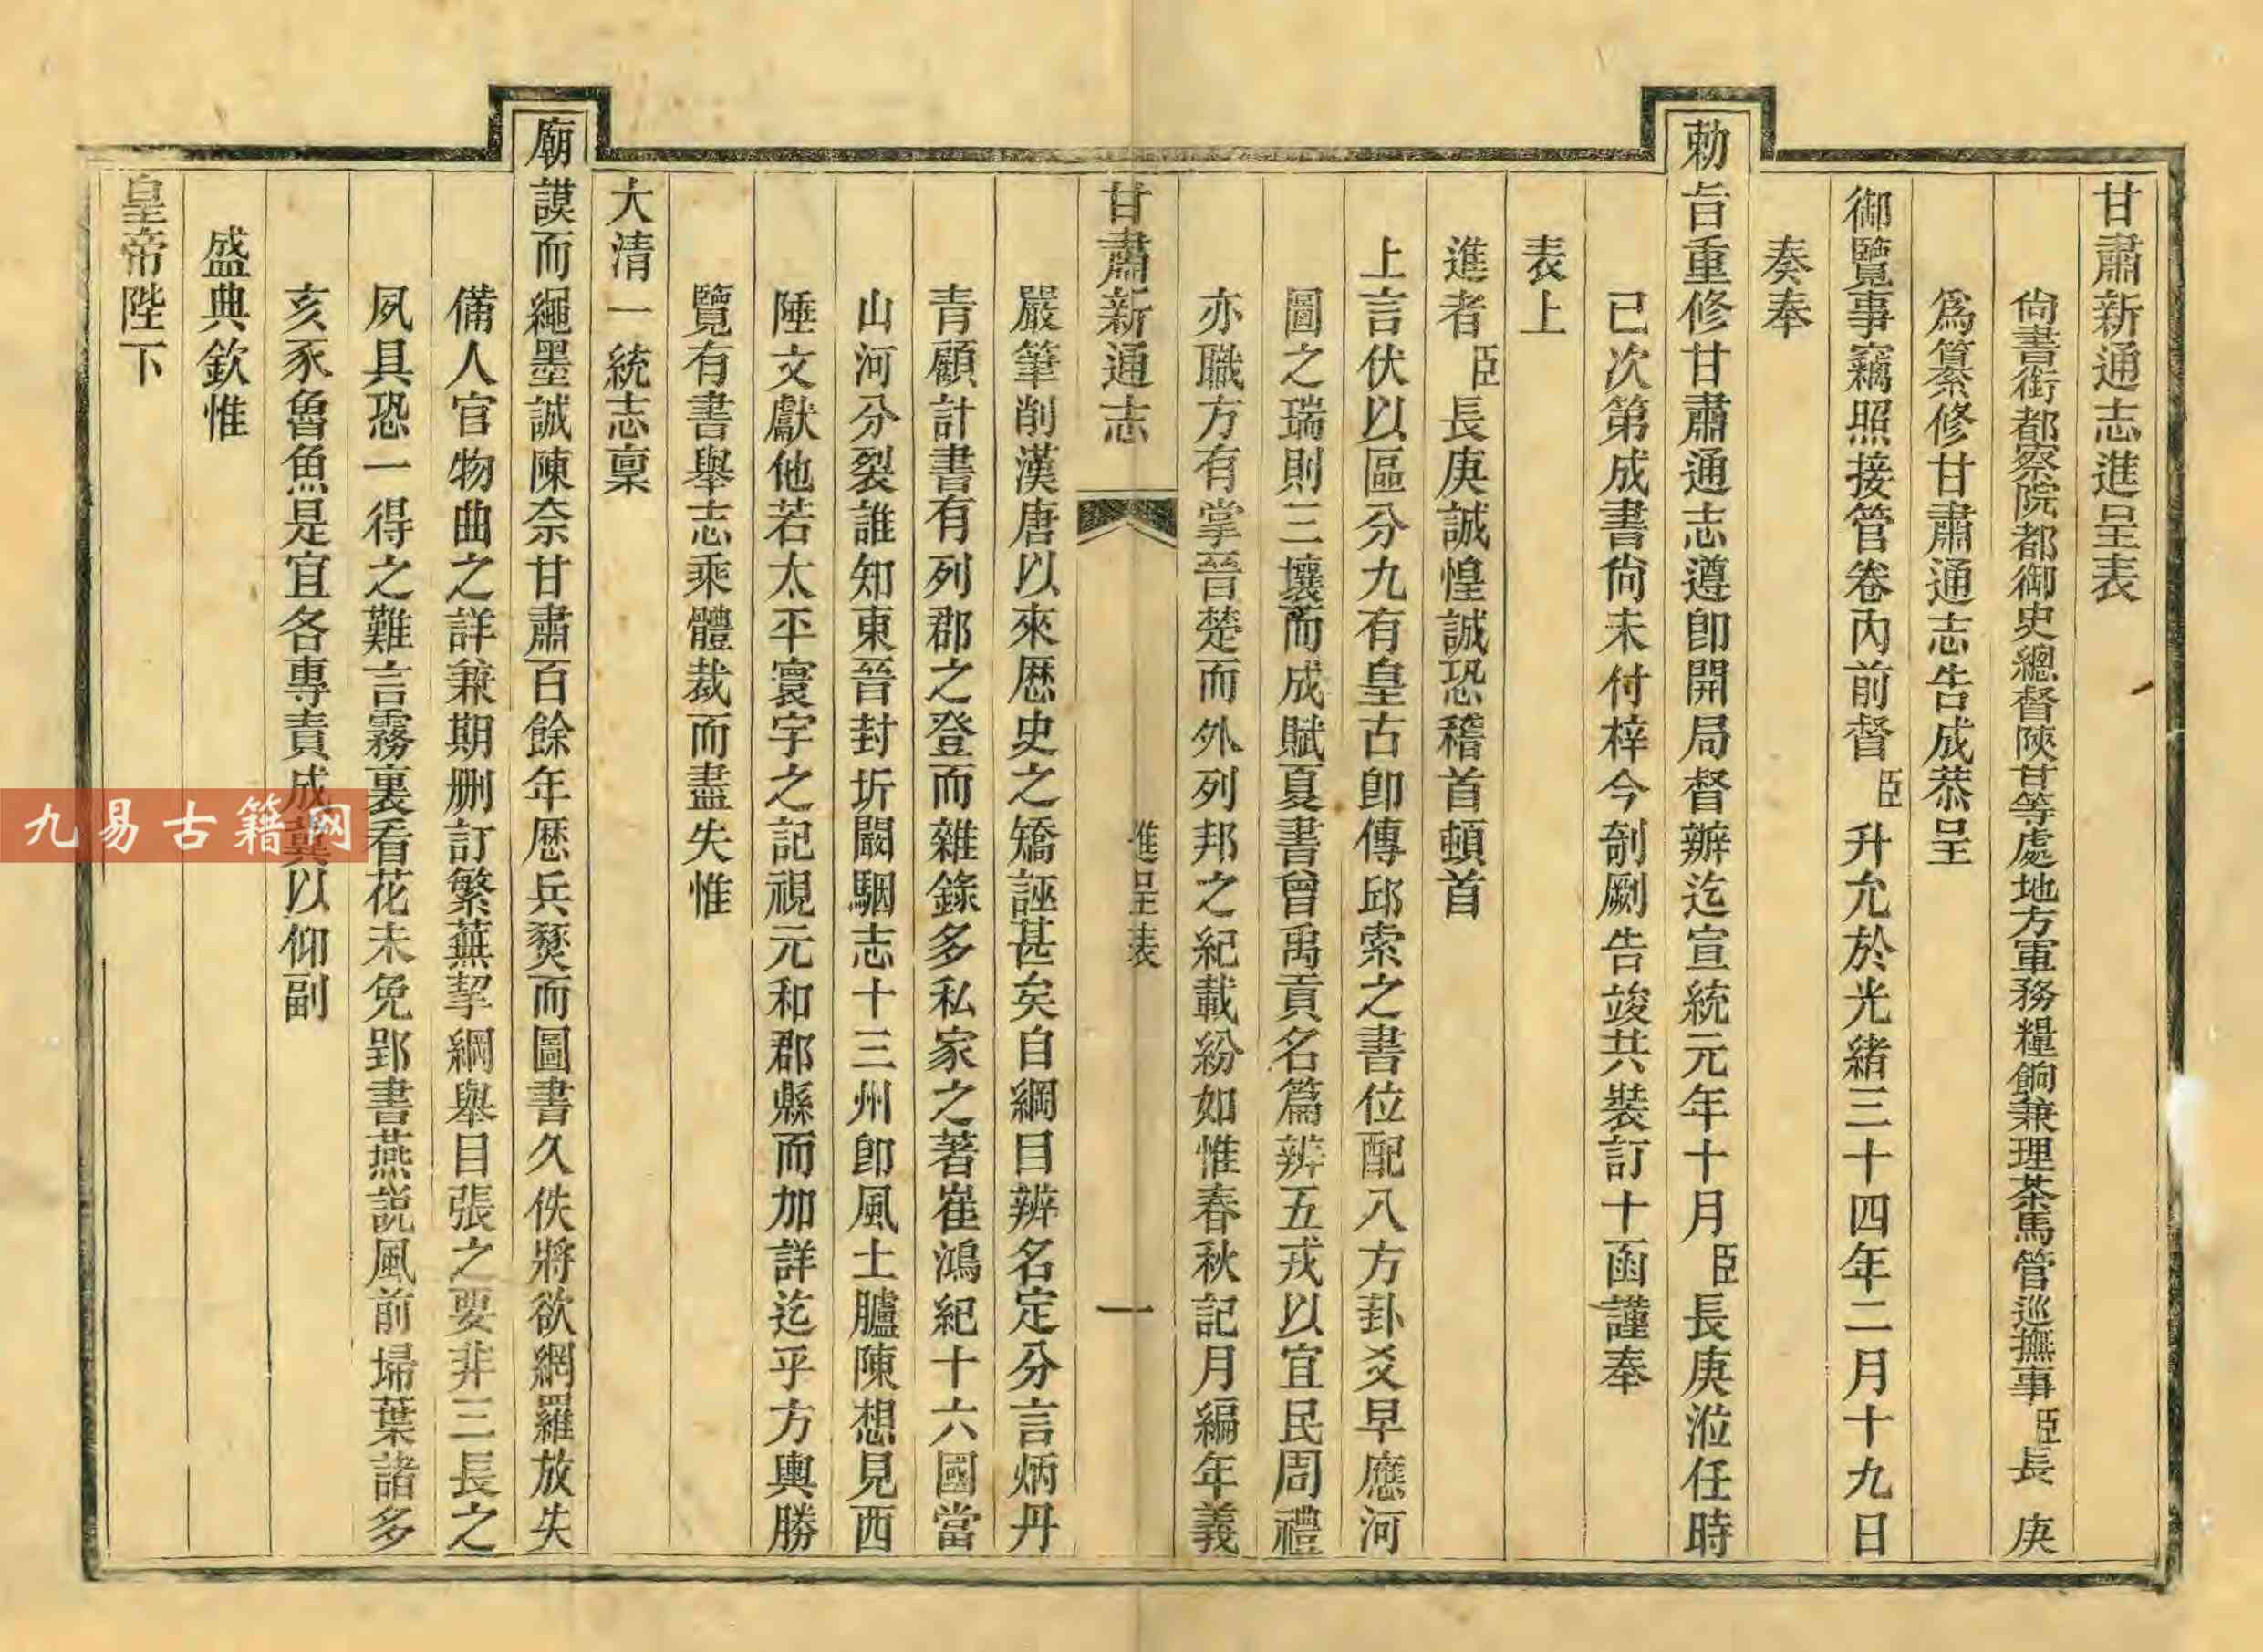 甘肅新通志進呈表
尙書銜都察院都御史總督陝甘等處地方軍務糧餉兼理茶馬管巡撫事臣長庚
爲纂修甘肅通志告成恭呈
御覽事竊照接管卷內前督臣升允於光緒三十四年二月十九日
奏奉
勅旨重修甘肅通志遵卽開局督辦迄宣統元年十月臣長庚涖任時
已次第成書尙未付梓今剞劂告竣共裝訂十函謹奉
表上
進者臣長庚誠惶誠恐稽首頓首
上言伏以區分九有皇古卽傳邱索之書位配八方卦爻早應河
圖之瑞則三壤而成賦夏書曾禹貢名篇辨五戎以宜民周禮
亦職方有掌晉楚而外列邦之紀載紛如惟春秋記月編年義
甘肅新通志
進呈表
一
嚴筆削漢唐以來歷史之矯誣甚矣自綱目辨名定分言炳丹
青顧計書有列郡之登而雜錄多私家之著崔鴻紀十六國當
山河分裂誰知東晉封圻闞駰志十三州卽風土臚陳想見西
陲文獻他若太平寰宇之記視元和郡縣而加詳迄乎方輿勝
覽有書舉志乘體裁而盡失惟
大清一統志稟
廟謨而繩墨誠陳奈甘肅百餘年歷兵燹而圖書久佚將欲網羅放失
備人官物曲之詳兼期刪訂繁蕪挈綱舉目張之要非三長之
夙具恐一得之難言霧裏看花未免郢書燕説風前埽葉諸多
亥豕魯魚是宜各專責成冀以仰副
盛典欽惟
皇帝陛下
九易古籍网